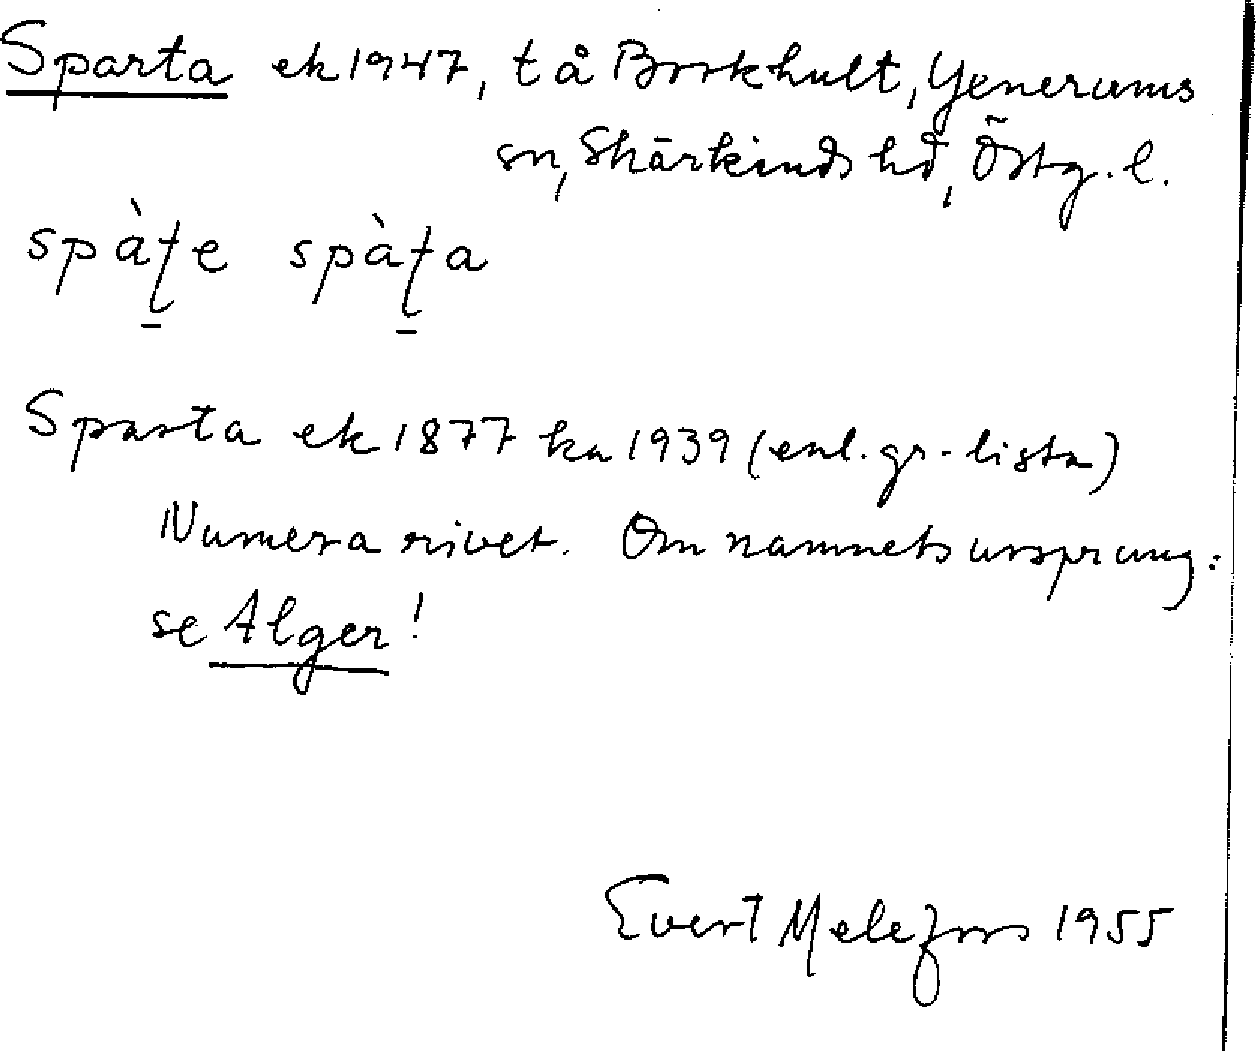 Sparta ek 1947, t å Borkhult, Yxnerums
sn, Skärkinds hd, Östg. l.
spàʈe spàʈa
Sparta ek 1877 ka 1939 (enl. gs-lista)
Numera rivet. Om namnets ursprung:
se Alger!
Evert Melefors 1955